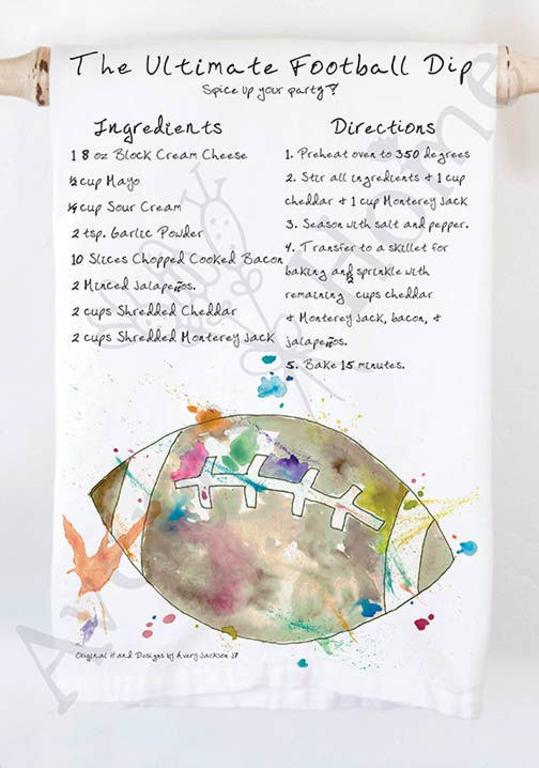 The Ultimate Football Dip
Spice up your party!
Ingredients
1 8 oz Block Cream Cheese
½ cup Mayo
¼ cup Sour Cream
2 tsp. Garlic Powder
10 Slices Chopped Cooked Bacon
2 Minced Jalapeños.
2 cups Shredded Cheddar
2 cups Shredded Monterey Jack
Directions
1. Preheat oven to 350 degrees
2. Stir all ingredients & 1 cup
cheddar & 1 cup Monterey Jack
3. Season with salt and pepper.
4. Transfer to a skillet for
baking and sprinkle with
remaining ½ cups cheddar
& Monterey Jack, bacon, &
jalapeños.
5. Bake 15 minutes.
Original Hand Designs by Avery Jackson
Home